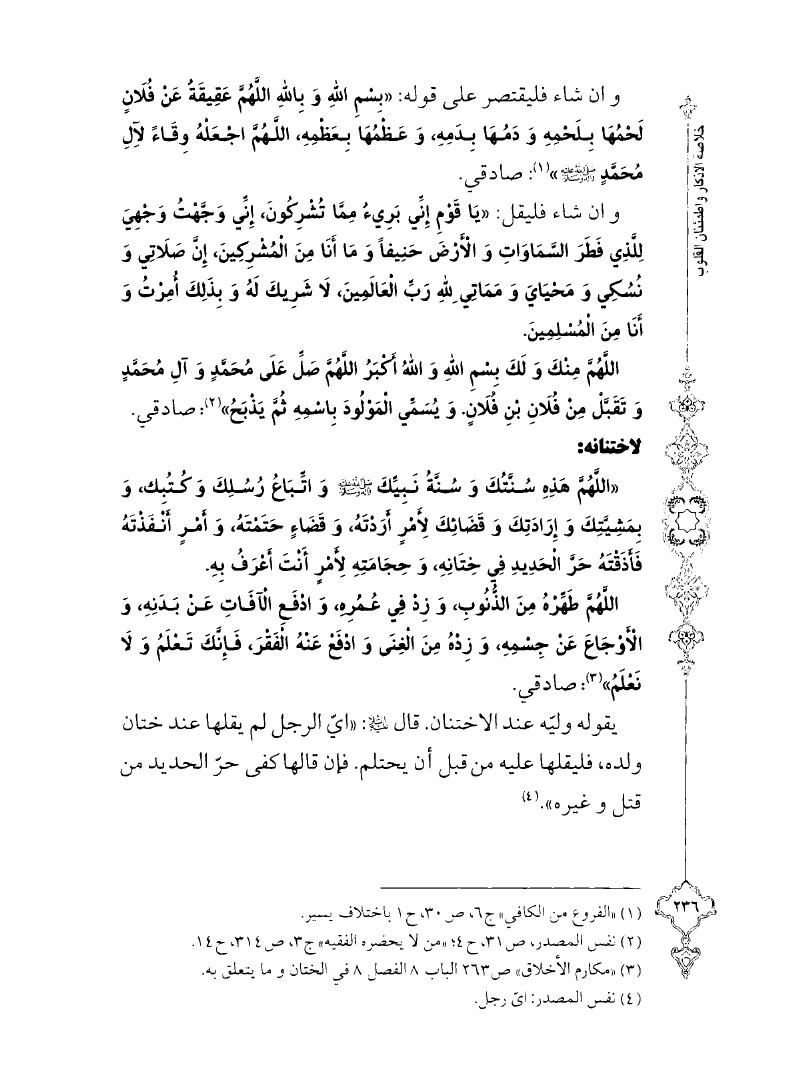 و ان شاء فليقتصر على قوله: «بِسْمِ اللهِ وَ بِاللهِ اللَّهُمَّ عَقِيقَةٌ عَنْ فُلَانٍ
لَحْمُهَا بِلَحْمِهِ وَ دَمُهَا بِدَمِهِ، وَ عَظْمُهَا بِعَظْمِهِ، اللَّهُمَّ اجْعَلْهُ وِقَاءً لآِلِ
مُحَمَّدٍ ﷺ»(١): صادقي.
و ان شاء فليقل: «يَا قَوْمِ إِنِّي بَرِيءٌ مِمَّا تُشْرِكُونَ، إِنِّي وَجَّهْتُ وَجْهِيَ
لِلَّذِي فَطَرَ السَّمَاوَاتِ وَ الْأَرْضَ حَنِيفاً وَ مَا أَنَا مِنَ الْمُشْرِكِينَ، إِنَّ صَلَاتِي وَ
نُسُكِي وَ مَحْيَايَ وَ مَمَاتِي لِلهِ رَبِّ الْعَالَمِينَ، لَا شَرِيكَ لَهُ وَ بِذَلِكَ أُمِرْتُ وَ
أَنَا مِنَ الْمُسْلِمِينَ.
اللَّهُمَّ مِنْكَ وَ لَكَ بِسْمِ اللهِ وَ اللهُ أَكْبَرُ اللَّهُمَّ صَلِّ عَلَى مُحَمَّدٍ وَ آلِ مُحَمَّدٍ
وَ تَقَبَّلْ مِنْ فُلَانِ بْنِ فُلَانٍ. وَ يُسَمِّي الْمَوْلُودَ بِاسْمِهِ ثُمَّ يَذْبَحُ»(٢): صادقي.
لاختنانه:
«اللَّهُمَّ هَذِهِ سُنَّتُكَ وَ سُنَّةُ نَبِيِّكَ ﷺ وَ اتِّبَاعُ رُسُلِكَ وَ كُتُبِك، وَ
بِمَشِيَّتِكَ وَ إِرَادَتِكَ وَ قَضَائِكَ لِأَمْرٍ أَرَدْتَهُ، وَ قَضَاءٍ حَتَمْتَهُ، وَ أَمْرٍ أَنْفَذْتَهُ
فَأَذَقْتَهُ حَرَّ الْحَدِيدِ فِي خِتَانِهِ، وَ حِجَامَتِهِ لِأَمْرٍ أَنْتَ أَعْرَفُ بِهِ.
اللَّهُمَّ طَهِّرْهُ مِنَ الذُّنُوبِ، وَ زِدْ فِي عُمُرِهِ، وَ ادْفَعِ الْآفَاتِ عَنْ بَدَنِهِ، وَ
الْأَوْجَاعَ عَنْ جِسْمِهِ، وَ زِدْهُ مِنَ الْغِنَى وَ ادْفَعْ عَنْهُ الْفَقْرَ، فَإِنَّكَ تَعْلَمُ وَ لَا
نَعْلَمُ»(٣): صادقي.
يقوله وليّه عند الاختنان. قال ﷵ: «ايّ الرجل لم يقلها عند ختان
ولده، فليقلها عليه من قبل أن يحتلم. فإن قالها كفى حرّ الحديد من
قتل و غيره».(٤)
(١) «الفروع من الكافي» ج٦، ص ٣٠، ح١ باختلاف يسير.
(٢) نفس المصدر، ص ٣١، ح٤؛ «من لا يحضره الفقيه» ج٣، ص ٣١٤ ح١٤.
(٣) «مكارم الأخلاق» ص٢٦٣ الباب ٨ الفصل ٨ في الختان و ما يتعلق به.
(٤) نفس المصدر: اىّ رجل.
خلاصة الاذكار و اطمئنان القلوب
٢٣٦